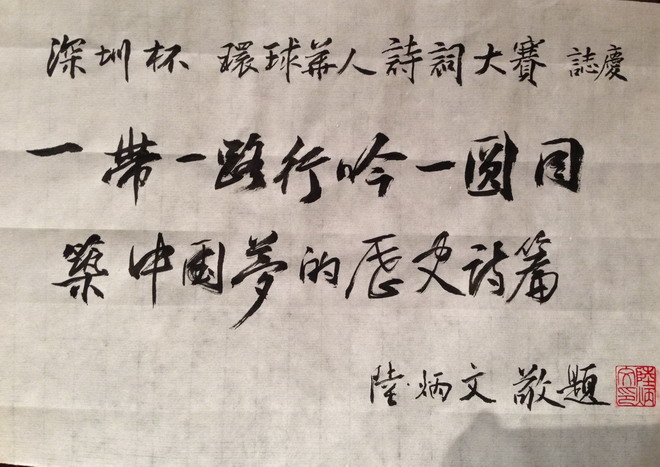 深圳杯 環球華人詩詞大賽 誌慶
一帶一路行吟一圓同
築中國夢的歷史詩篇
陸炳文 敬題
陸炳文印